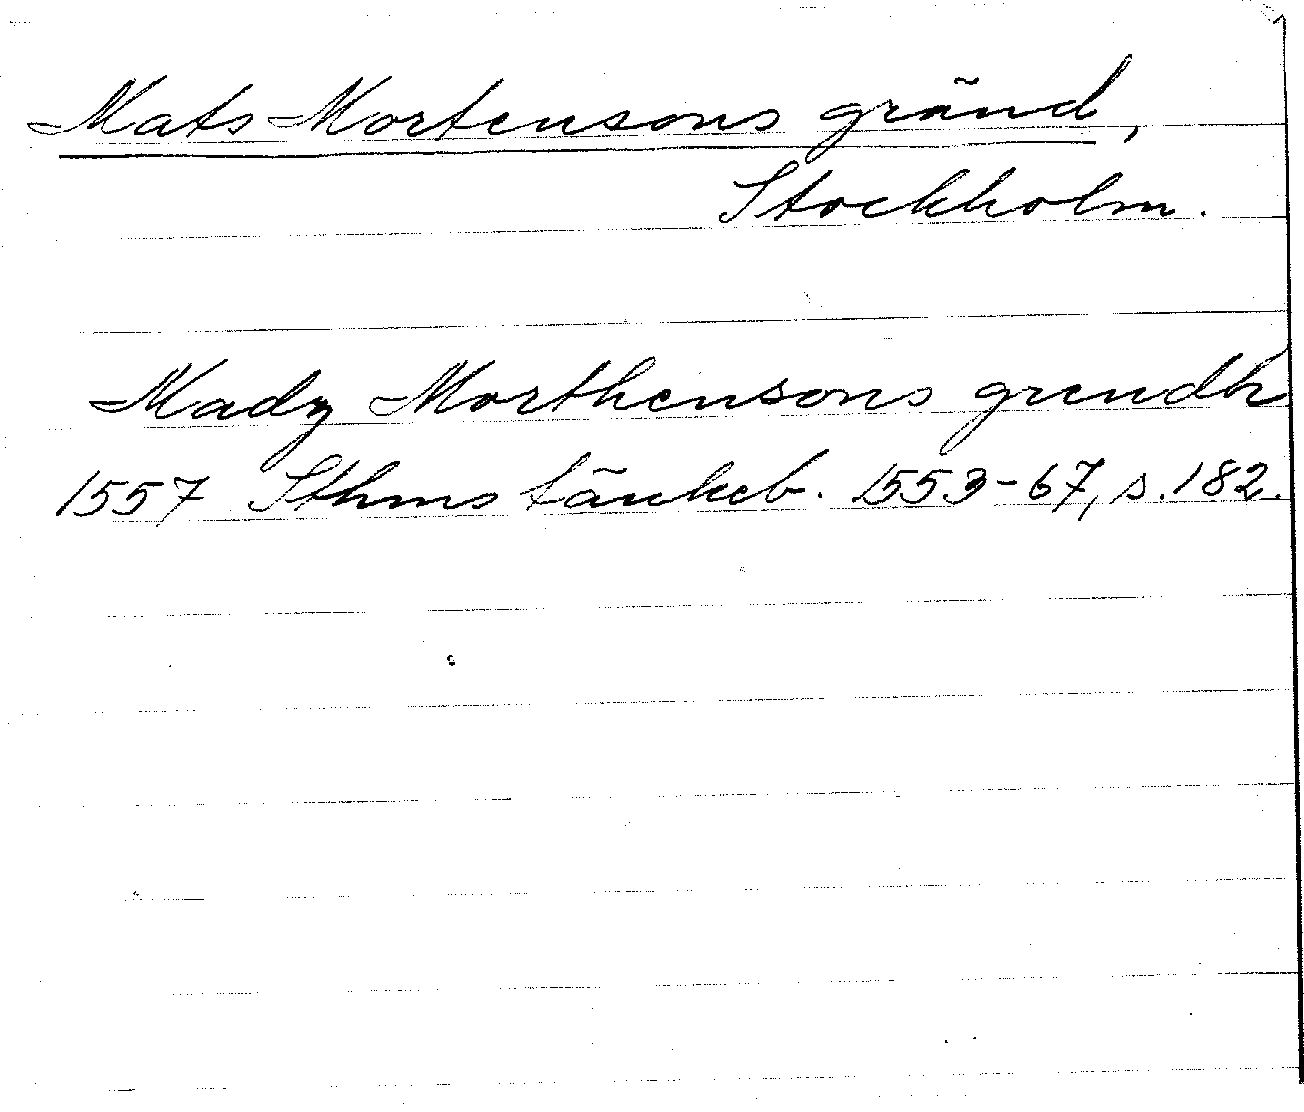 Mats Mortensons gränd,
Stockholm.
Madz Morthensons grendh
1557 Sthms tänkeb. 1553-67, s. 182.